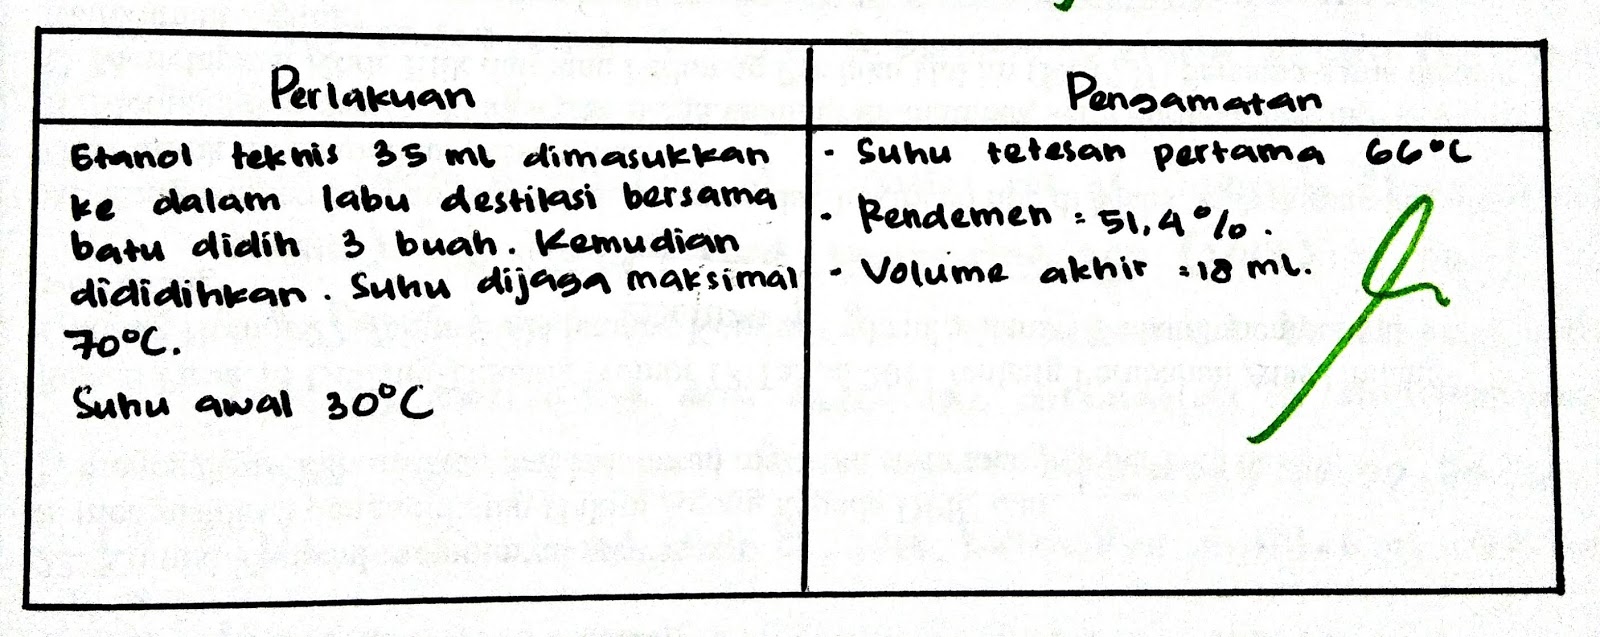 Perlakuan
Etanol teknis 35 ml dimasukkan
ke dalam labu destilasi bersama
batu didih 3 buah. Kemudian
dididihkan. Suhu dijaga maksimal
70°C.
Suhu awal 30°C
Pengamatan
· Suhu tetesan pertama 66°C
· Rendemen = 51,4%.
· Volume akhir = 18 ml.